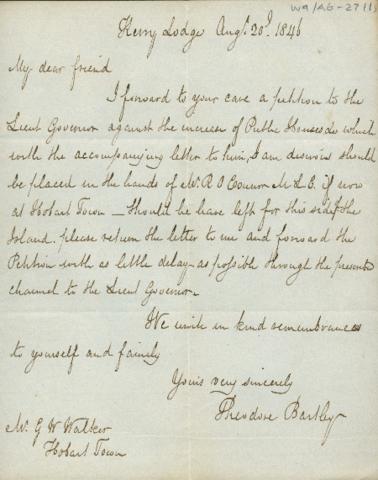 W9/AG-27(1)
Kerry Lodge Augt. 20d. 1846
My dear friend
I forward to your care a petition to the
Lieut Governor against the increase of Public Houses &c which
with the accompanying letter to him, I am desirous should
be placed in the hands of Mr. R O'Connor M L C. if now
at Hobart Town — Should he have left for this side of the
Island. please return the letter to me and forward the
Petition with as little delay as possible through the present
channel to the Lieut Governor.
We unite in kind remembrances
to yourself and family
Yours very sincerely
Theodore Bartley
Mr. G W Walker
Hobart Town